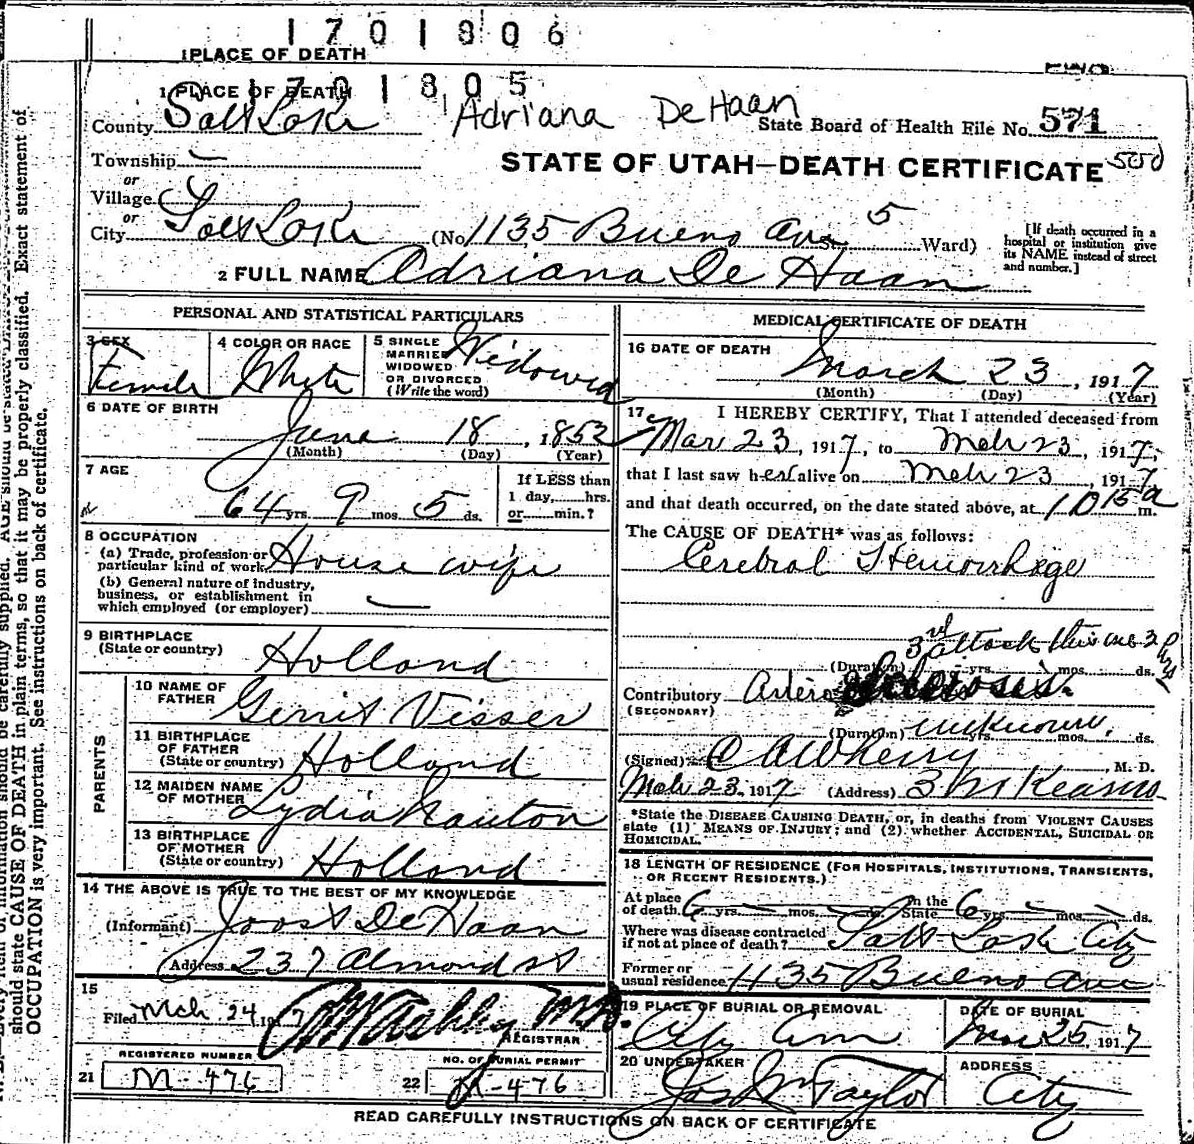 1701806
1 PLACE OF DEATH
1701805
1 PLACE OF DEATH
County Salt Lake
Adriana De Haan
State Board of Health File No. 571
Township —
STATE OF UTAH—DEATH CERTIFICATE 500
or
Village
or
City Salt Lake (No. 1135 Bueno Ave St. 5 Ward)
[If death occurred in a
hospital or institution give
its NAME instead of street
and number.]
2 FULL NAME Adriana De Haan
PERSONAL AND STATISTICAL PARTICULARS
3 SEX
Female
4 COLOR OR RACE
White
5 SINGLE
MARRIED
WIDOWED
OR DIVORCED
(Write the word)
Widowed
6 DATE OF BIRTH
June 18, 1852
(Month) (Day) (Year)
7 AGE
64 yrs. 9 mos. 5 ds.
If LESS than
1 day,......hrs.
or......min.?
8 OCCUPATION
(a) Trade, profession or
particular kind of work House wife
(b) General nature of industry,
business, or establishment in
which employed (or employer) —
9 BIRTHPLACE
(State or country) Holland
PARENTS
10 NAME OF
FATHER Gerrit Visser
11 BIRTHPLACE
OF FATHER
(State or country) Holland
12 MAIDEN NAME
OF MOTHER Lydia
13 BIRTHPLACE
OF MOTHER
(State or country) Holland
14 THE ABOVE IS TRUE TO THE BEST OF MY KNOWLEDGE
(Informant) Joost De Haan
Address 237 Almond St
15
Filed Mch. 24 1917
M.D.
REGISTRAR
REGISTERED NUMBER
21 M-476
NO. OF BURIAL PERMIT
22 M-476
MEDICAL CERTIFICATE OF DEATH
16 DATE OF DEATH
March 23, 1917
(Month) (Day) (Year)
17 I HEREBY CERTIFY, That I attended deceased from
Mar 23, 1917, to Mch 23, 1917,
that I last saw her alive on Mch 23, 1917
and that death occurred, on the date stated above, at 1015 a m.
The CAUSE OF DEATH* was as follows:
Cerebral Hemorrhage
3rd attack this one 3
(Duration) yrs. mos. ds.
Contributory Arterio Sclerosis.
(SECONDARY)
(Duration) unknown. yrs. mos. ds.
(Signed) M. D.
Mch 23, 1917 (Address) McKearns
*State the DISEASE CAUSING DEATH, or, in deaths from VIOLENT CAUSES
state (1) MEANS OF INJURY; and (2) whether ACCIDENTAL, SUICIDAL OR
HOMICIDAL.
18 LENGTH OF RESIDENCE (FOR HOSPITALS, INSTITUTIONS, TRANSIENTS,
OR RECENT RESIDENTS.)
At place
of death 6 yrs. — mos. — ds. In the
State 6 yrs. — mos. — ds.
Where was disease contracted
if not at place of death? Salt Lake City
Former or
usual residence 1135 Bueno Ave
19 PLACE OF BURIAL OR REMOVAL
City Cem
DATE OF BURIAL
Mar 25, 1917
20 UNDERTAKER
Jos Wm Taylor
ADDRESS
City
READ CAREFULLY INSTRUCTIONS ON BACK OF CERTIFICATE
should state CAUSE OF DEATH in plain terms, so that it may be properly classified. Exact statement of
OCCUPATION is very important. See instructions on back of certificate.